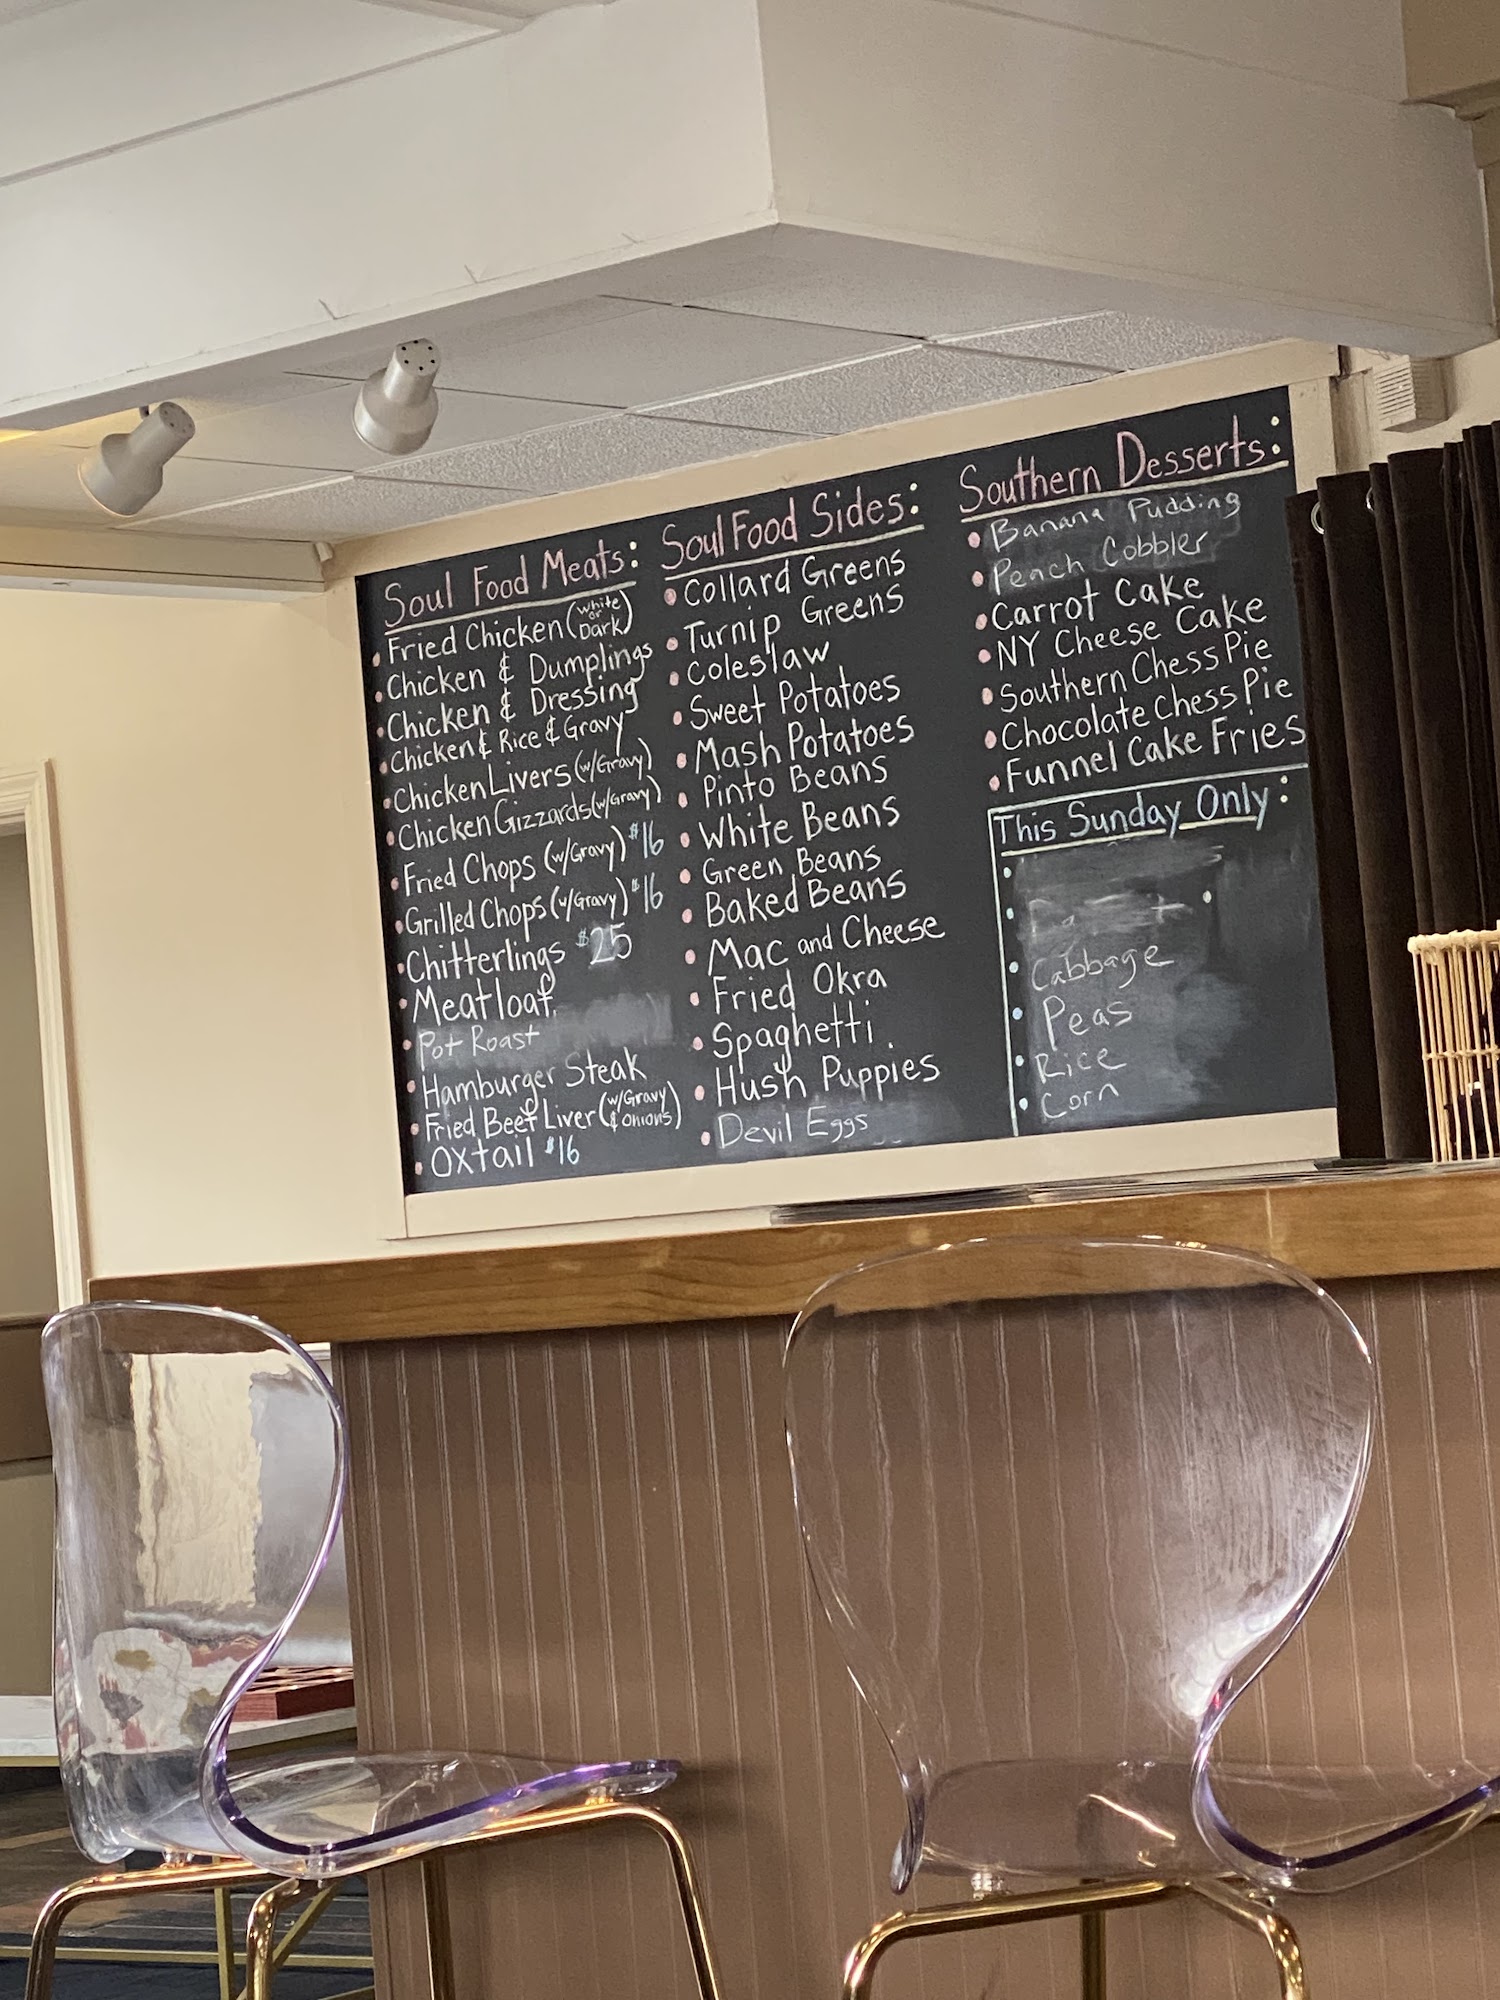 Soul Food Meats:
• Fried Chicken (White or Dark)
• Chicken & Dumplings
• Chicken & Dressing
• Chicken & Rice & Gravy
• Chicken Livers (w/Gravy)
• Chicken Gizzards (w/Gravy)
• Fried Chops (w/Gravy) $16
• Grilled Chops (w/Gravy) $16
• Chitterlings $25
• Meatloaf
• Pot Roast
• Hamburger Steak
• Fried Beef Liver (w/Gravy & Onions)
• Oxtail $16
Soul Food Sides:
• Collard Greens
• Turnip Greens
• Coleslaw
• Sweet Potatoes
• Mash Potatoes
• Pinto Beans
• White Beans
• Green Beans
• Baked Beans
• Mac and Cheese
• Fried Okra
• Spaghetti
• Hush Puppies
• Devil Eggs
Southern Desserts:
• Banana Pudding
• Peach Cobbler
• Carrot Cake
• NY Cheese Cake
• Southern Chess Pie
• Chocolate Chess Pie
• Funnel Cake Fries
This Sunday Only:
• Cabbage
• Peas
• Rice
• Corn